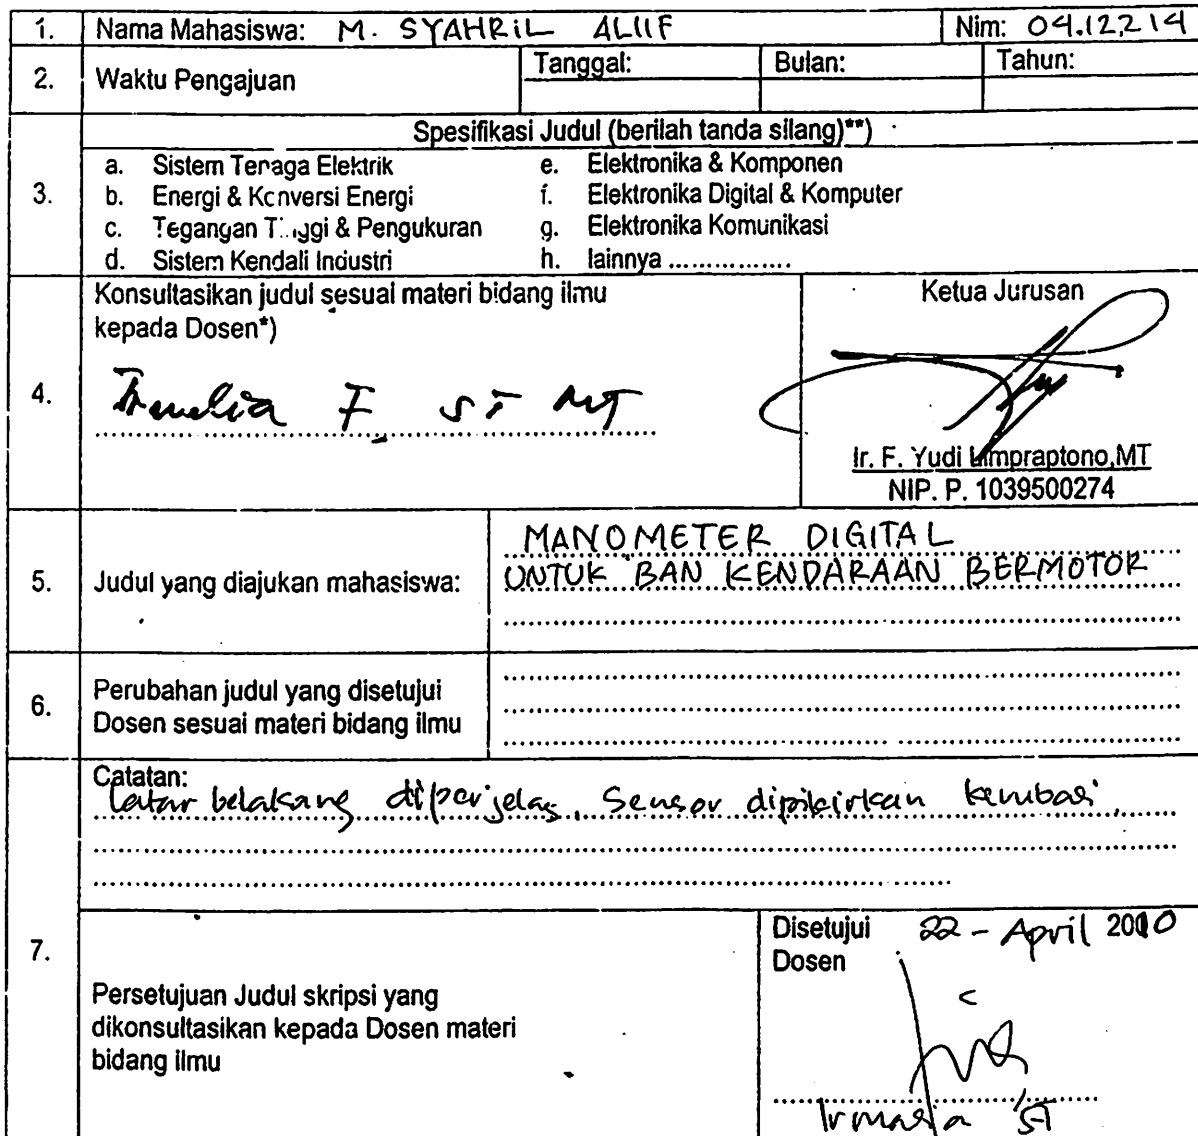 1. Nama Mahasiswa: M. SYAHRIL ALIIF Nim: 04.12.214
2. Waktu Pengajuan Tanggal: Bulan: Tahun:
3. Spesifikasi Judul (berilah tanda silang)**)
a. Sistem Tenaga Elektrik e. Elektronika & Komponen
b. Energi & Konversi Energi f. Elektronika Digital & Komputer
c. Tegangan Tinggi & Pengukuran g. Elektronika Komunikasi
d. Sistem Kendali Industri h. lainnya ................
4. Konsultasikan judul sesuai materi bidang ilmu
kepada Dosen*)
F ST MT
Ketua Jurusan
Ir. F. Yudi Limpraptono,MT
NIP. P. 1039500274
5. Judul yang diajukan mahasiswa:
MANOMETER DIGITAL
UNTUK BAN KENDARAAN BERMOTOR
6. Perubahan judul yang disetujui
Dosen sesuai materi bidang ilmu
7. Catatan:
latar belakang diperjelas, Sensor dipikirkan kembali,
Persetujuan Judul skripsi yang
dikonsultasikan kepada Dosen materi
bidang ilmu
Disetujui 22 - April 2010
Dosen
Irmalia ST